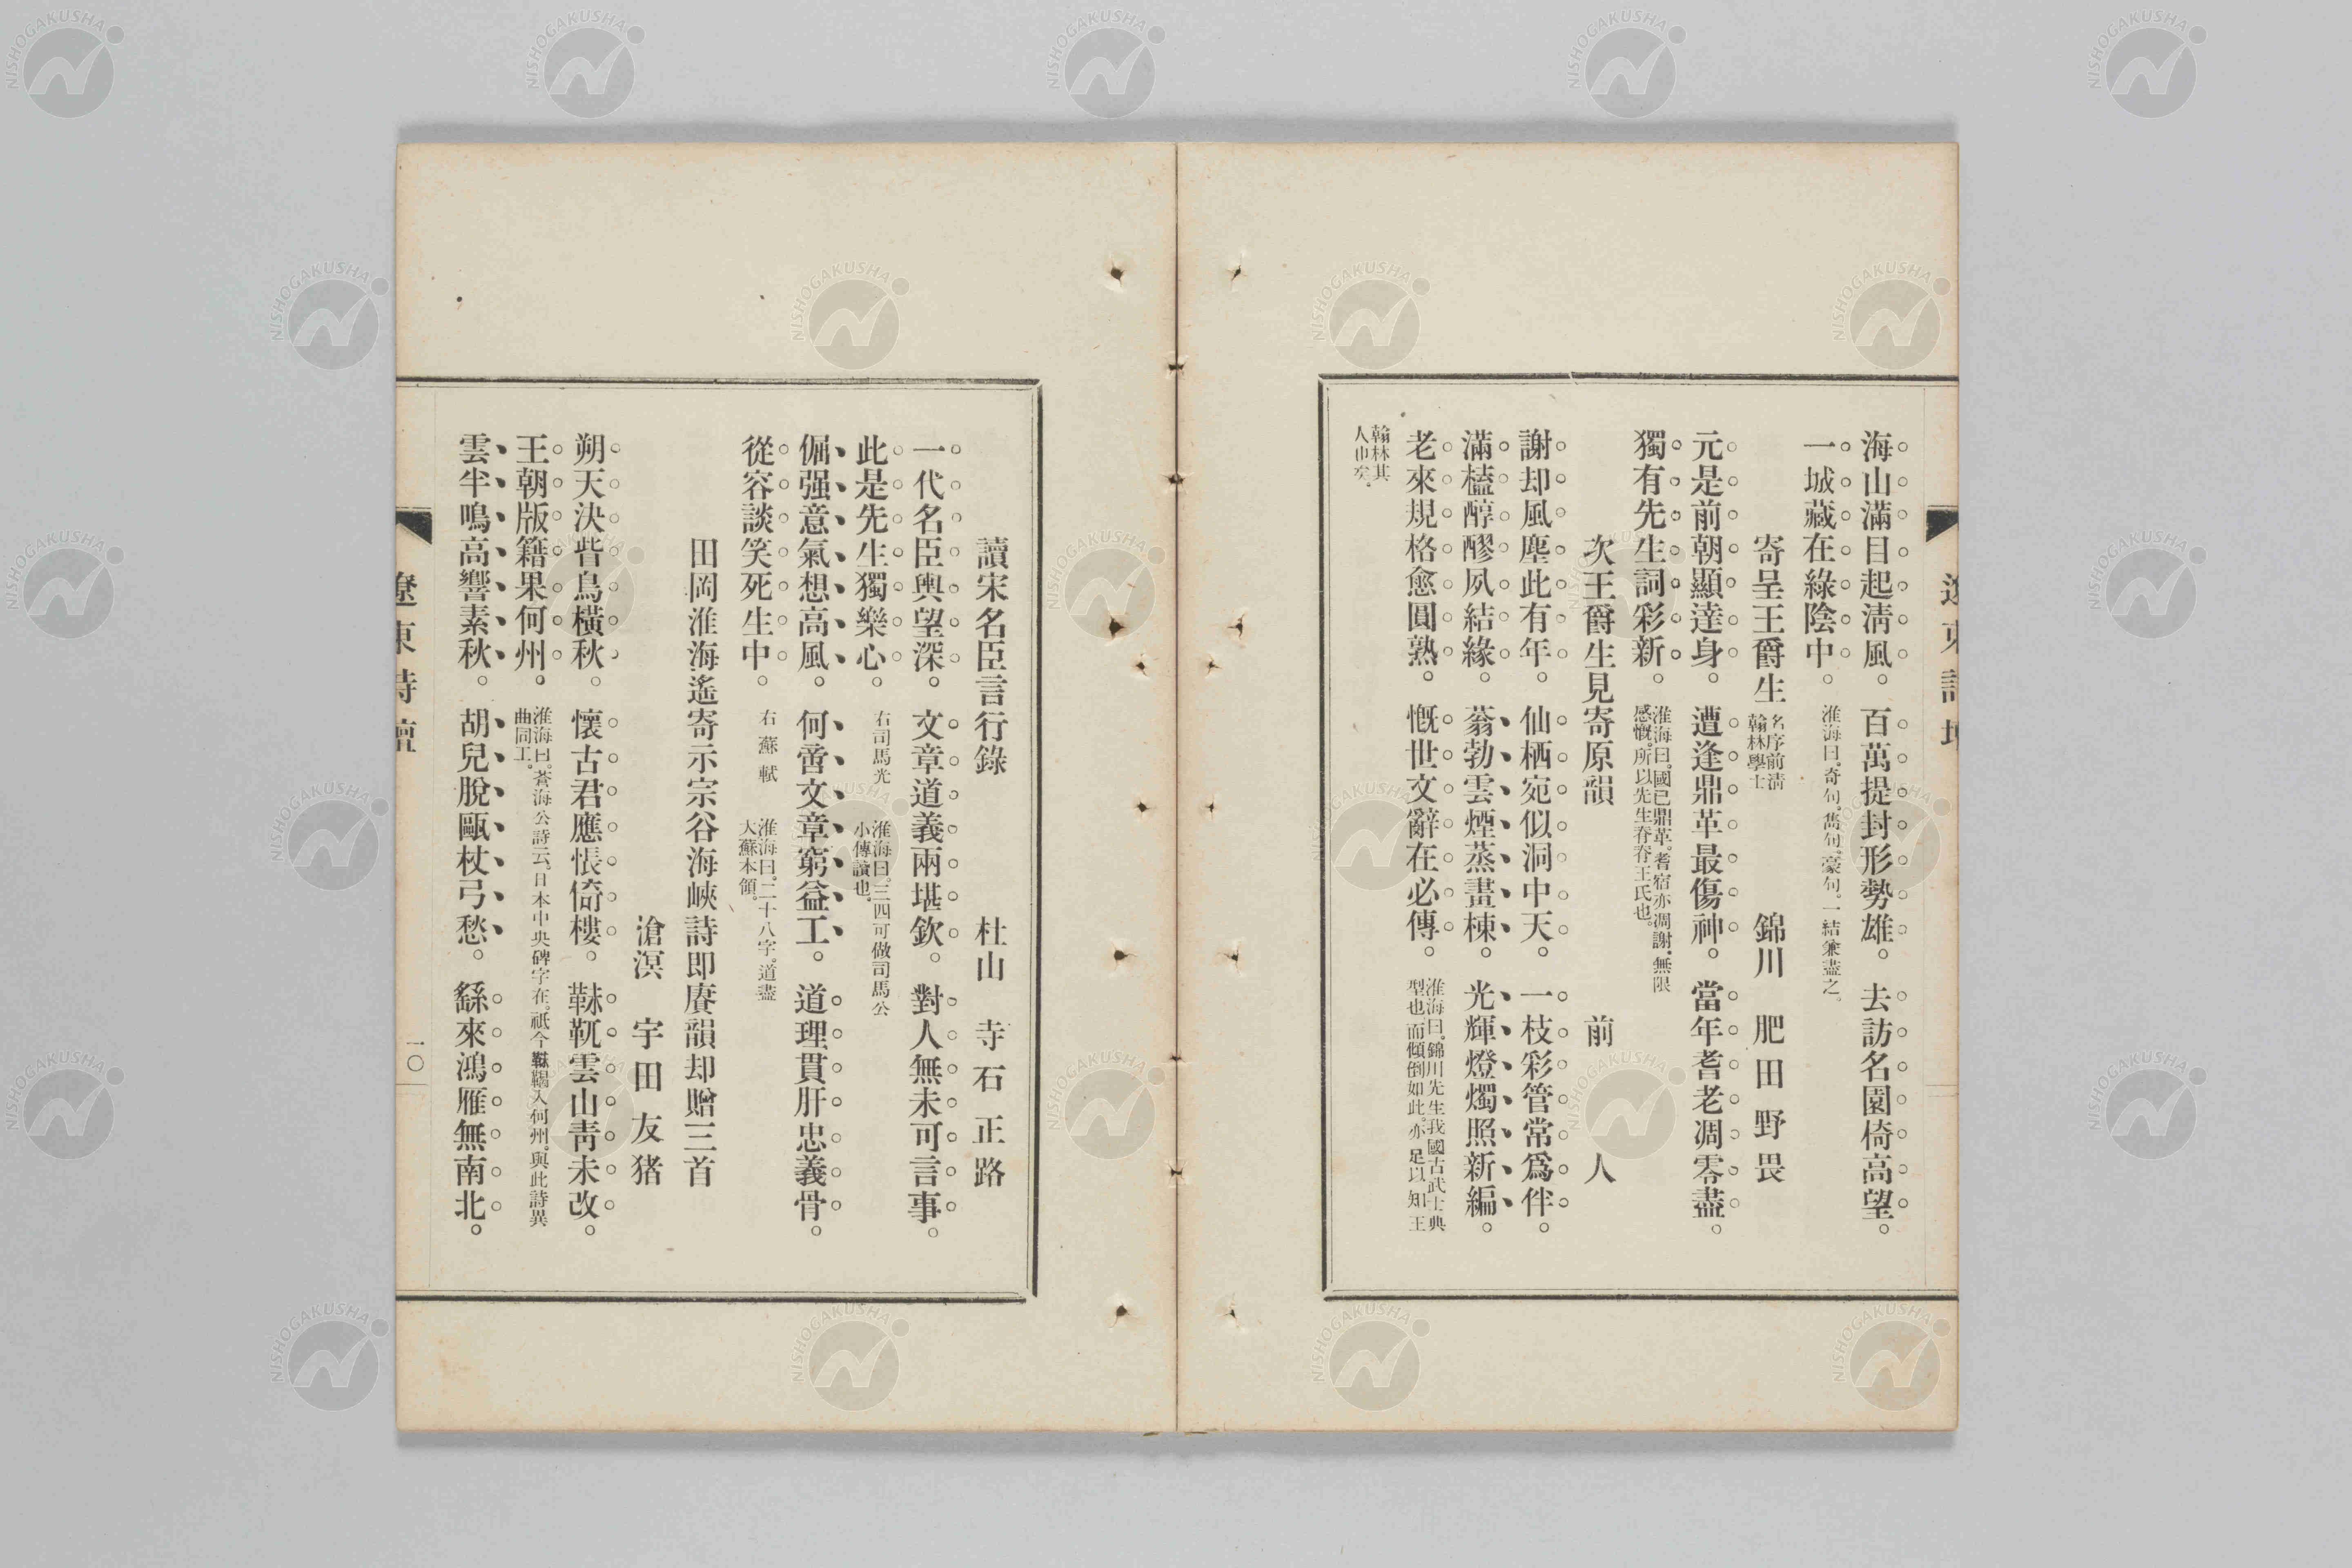 海山滿目起淸風。百萬提封形勢雄。去訪名園椅高望。
一城藏在綠陰中。淮海曰。奇句。雋句。豪句。一結兼盡之。
寄呈王爵生 名序前淸翰林學士 錦川 肥田野畏
元是前朝顯達身。遭逢鼎革最傷神。當年耆老凋零盡。
獨有先生詞彩新。淮海曰。國已鼎革。耆宿亦凋謝。無限感慨。所以先生眷眷王氏也。
次王爵生見寄原韻 前人
謝却風塵此有年。仙栖宛似洞中天。一枝彩管常爲伴。
滿榼醇醪夙結緣。蓊勃雲煙蒸畫棟。光輝燈燭照新編。
老來規格愈圓熟。慨世文辭在必傳。淮海曰。錦川先生我國古武士典型也。而傾倒如此。亦足以知王
翰林其人也矣。
遼東詩壇
讀宋名臣言行錄 杜山 寺石正路
一代名臣輿望深。文章道義兩堪欽。對人無未可言事。
此是先生獨樂心。右司馬光 淮海曰。三四可做司馬公小傳讀也。
倔强意氣想高風。何啻文章窮益工。道理貫肝忠義骨。
從容談笑死生中。右蘇軾 淮海曰。二十八字。道盡大蘇本領。
田岡淮海遙寄示宗谷海峽詩卽賡韻却贈三首
滄溟 宇田友猪
朔天決眥鳥橫秋。懷古君應悵倚樓。靺鞨雲山靑未改。
王朝版籍果何州。淮海曰。蒼海公詩云。日本中央碑字在。祇今靺鞨入何州。與此詩異曲同工。
雲半鳴高響素秋。胡兒脫甌杖弓愁。繇來鴻雁無南北。
遼東詩壇
一〇